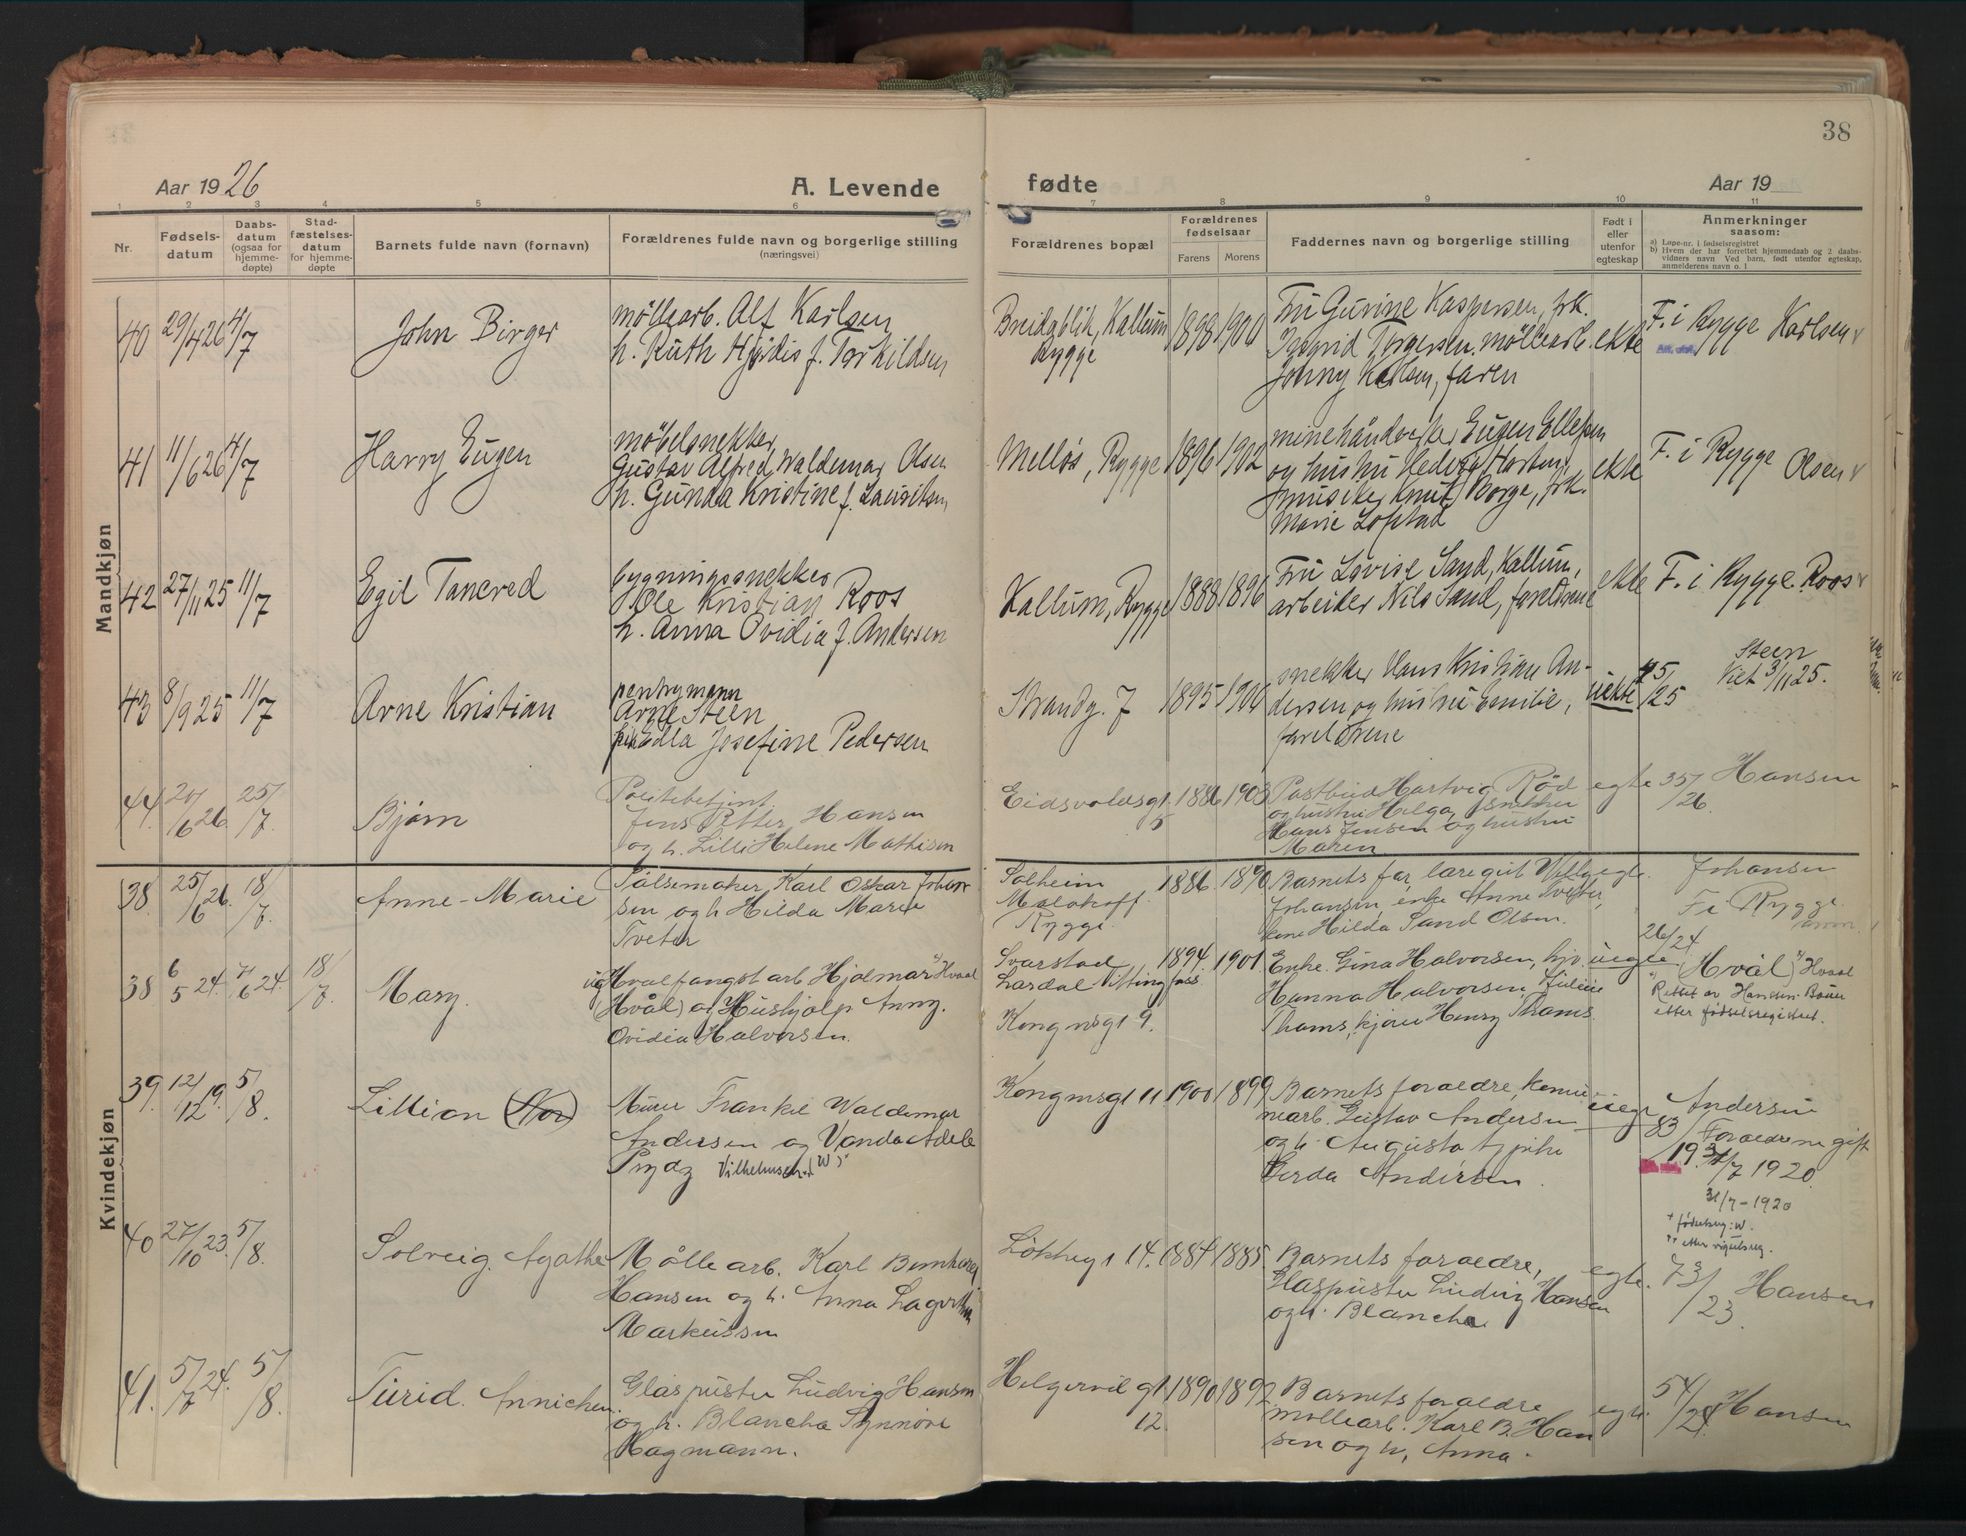 38
Aar 1926
A. Levende
fødte
Aar 19
1 2 3 4 5 6 7 8 9 10 11
Nr.
Fødsels-
datum
Daabs-
datum
(ogsaa for
hjemme-
døpte)
Stad-
fæstelses-
datum
for hjemme-
døpte
Barnets fulde navn (fornavn)
Forældrenes fulde navn og borgerlige stilling
(næringsvei)
Forældrenes bopæl
Forældrenes
fødselsaar
Farens
Morens
Faddernes navn og borgerlig stilling
Født i
eller
utenfor
egteskap
Anmerkninger
saasom:
a) Løpe-nr. i fødselsregistret
b) Hvem der har forrettet hjemmedaab og 2 daabs-
vidners navn Ved barn, født utenfor egteskap,
anmelderens navn o. l
Mandkjøn
40 29/4 26 4/7
John Birger
møllearb. Alf Karlsen
h. Ruth Hjördis f. Torkildsen
Breidablik, Kallum
Rygge
1898 1900
Fru Gurine Kaspersen, frk.
Ingrid Torgersen, møllearb.
Johnny Karlsen, faren
ekte
F. i Rygge Karlsen
41 11/6 26 4/7
Harry Eugen
møbelsnekker
Gustav Alfred Waldemar Olsen
h. Gunda Kristine f. Lauritsen
Melløs, Rygge
1896 1902
Eugen Ellefsen
og hustru Hedvig
musiker Knut Borge, frk.
Marie
ekte
F. i Rygge Olsen
42 27/11 25 11/7
Egil Tancred
bygningssnekker
Ole Kristian Roos
h. Anna Ovidia f. Andersen
Kallum, Rygge
1888 1896
Fru Lovise Sand, Kallum,
arbeider Nils Sand, foreldrene
ekte
F. i Rygge Roos
43 8/9 25 11/7
Arne Kristian
pentrymann
Arne Steen
Edla Josefine Pedersen
Strandg. 7
1895 1906
snekker Hans Kristian An-
dersen og hustru Emilie,
foreldrene
uekte
45/25
Steen
Viet 3/11 25.
44 20/6 26 25/7
Bjørn
Politibetjent
Jens Petter Hansen
og h. Lilli Helene Mathisen
Eidsvoldsgt.
5
1886 1903
Postbud Hartvig Rød
og hustru Helga, snekker
Hans Jensen og hustru
Maren
egte
35/26
Hansen
Kvindekjøn
38 25/6 26. 18/7
Anne-Marie
Pølsemaker Karl Oskar Johan
sen og h Hilda Marie
Tveter
Solheim
Malakoff
Rygge
1886 1890
Barnets far, læregut Willy
Johansen, enke Anne Tveter,
Hilda Sand Olsen.
egte.
Johansen
F i Rygge.
38 6/5 24. 7/6 24. 18/7
Mary.
Hvalfangstarb Hjalmar Hvaal
(Hvål) og Hushjælp Anny.
Ovidia Halvorsen.
Svarstad
Lardal
Kongensgt 9.
1894. 1901.
Enke Gina Halvorsen,
Hanna Halvorsen,
Thams, Henry Thams.
uegte
26/24
(Hvål) Hvaal
Rettet av Hanssen-Bauer
etter fødselsregistret.
39. 12/12 19. 5/8.
Lillian (Nor)
Murer Frankil Waldemar
Andersen og Vanda Adele
Prydz Vilhelmsen (W)
Kongensgt 11
1900 1899
Barnets foraeldre,
Gustav Andersen
og h. Augusta og pike
Gerda Andersen.
uegt
83/19.
Andersen
Foraeldrene gift
31/7 1920
31/7 - 1920
* fødselsreg: W.
** etter vigselsreg.
40 27/10 23. 5/8.
Solveig Agathe
Mølle arb. Karl Bernhard
Hansen og h. Anna Lagertha
Markussen
Løkkegt 14.
1884 1885.
Barnets foraeldre,
Glaspuster Ludvig Hansen
og h. Blancha
egte.
73/23
Hansen
41. 5/7 24. 5/8.
Turid. Annichen.
Glaspuster Ludvig Hansen
og h. Blancha Synnöve
Hagmann.
Helgerød gt.
12.
1890 1892.
Barnets foraeldre
møllearb. Karl B. Han
sen og h, Anna.
egte.
54/24.
Hansen